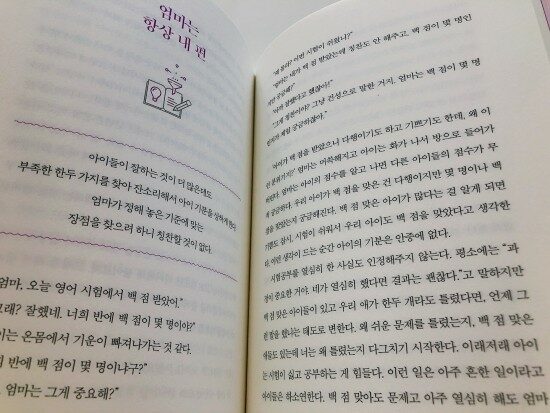 엄마는
항상 내 편
아이들이 잘하는 것이 더 많은데도
부족한 한두 가지를 찾아 잔소리해서 아이 기분을 상하게 한다
엄마가 정해 놓은 기준에 맞는
장점을 찾으려 하니 칭찬할 것이 없다.
엄마, 오늘 영어 시험에서 백 점 받았어."
그래? 잘했네. 너희 반에 백 점이 몇 명이야?"
이는 온몸에서 기운이 빠져나가는 것 같다.
희 반에 백 점이 몇 명이냐구?"
엄마는 그게 중요해?"
이번 시험이 쉬웠나?"
"엄마는 내가 백 점 받았는데 칭찬도 안 해주고, 백 점이 몇 명인
궁금해?"
잘했다고 했잖아!"
"그게 칭찬이야? 그냥 건성으로 말한 거지. 엄마는 백 점이 몇 명
제일 궁금하잖아."
아이가 백 점을 받았으니 다행이기도 하고 기쁘기도 한데, 왜 이
분위기? 엄마는 머쓱해지고 아이는 화가 나서 방으로 들어가
엄마는 아이의 점수를 알고 나면 다른 아이들의 점수가 무
궁금하다. 우리 아이가 백 점을 맞은 건 다행이지만 몇 명이나 백
점을 맞았는지 궁금해진다. 백 점 맞은 아이가 많다는 걸 알게 되면
기쁨도 잠시, 시험이 쉬워서 우리 아이도 백 점을 맞았다고 생각한
다. 이런 생각이 드는 순간 아이의 기분은 안중에 없다.
시험공부를 열심히 한 사실도 인정해주지 않는다. 평소에는 "과
정이 중요한 거야. 네가 열심히 했다면 결과는 괜찮다."고 말하지만
백 점 맞은 아이들이 있고 우리 애가 한두 개라도 틀렸다면, 언제 그
런 말을 했냐는 태도로 변한다. 왜 쉬운 문제를 틀렸는지, 백 점 맞은
애들도 있는데 너는 왜 틀렸는지 다그치기 시작한다. 이래저래 아이
는 시험이 싫고 공부하는 게 힘들다. 이런 일은 아주 흔한 일이라고
아이들은 하소연한다. 백 점 맞아도 문제고 아주 열심히 해도 엄마